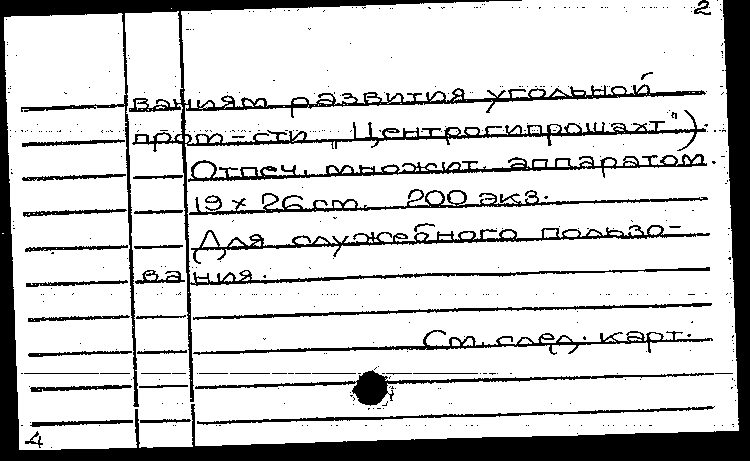 2
ваниям развития угольной
пром-сти „Центрогипрошахт").
Отпеч. множит. аппаратом.
19 х 26 см. 200 экз.
Для служебного пользо-
вания.
См. след. карт.
4